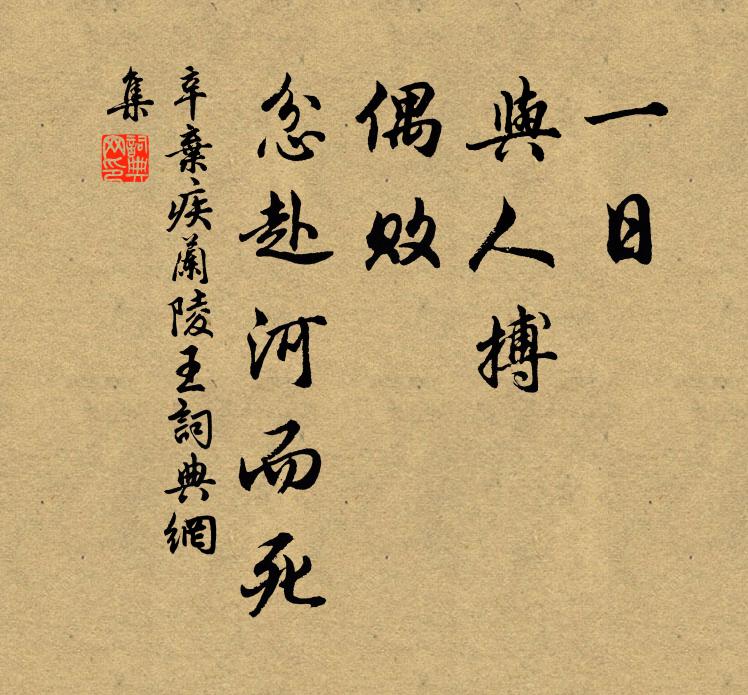 一日
與人搏
偶敗
忿赴河而死
辛棄疾蘭陵王詞典網
集
詞典
网印